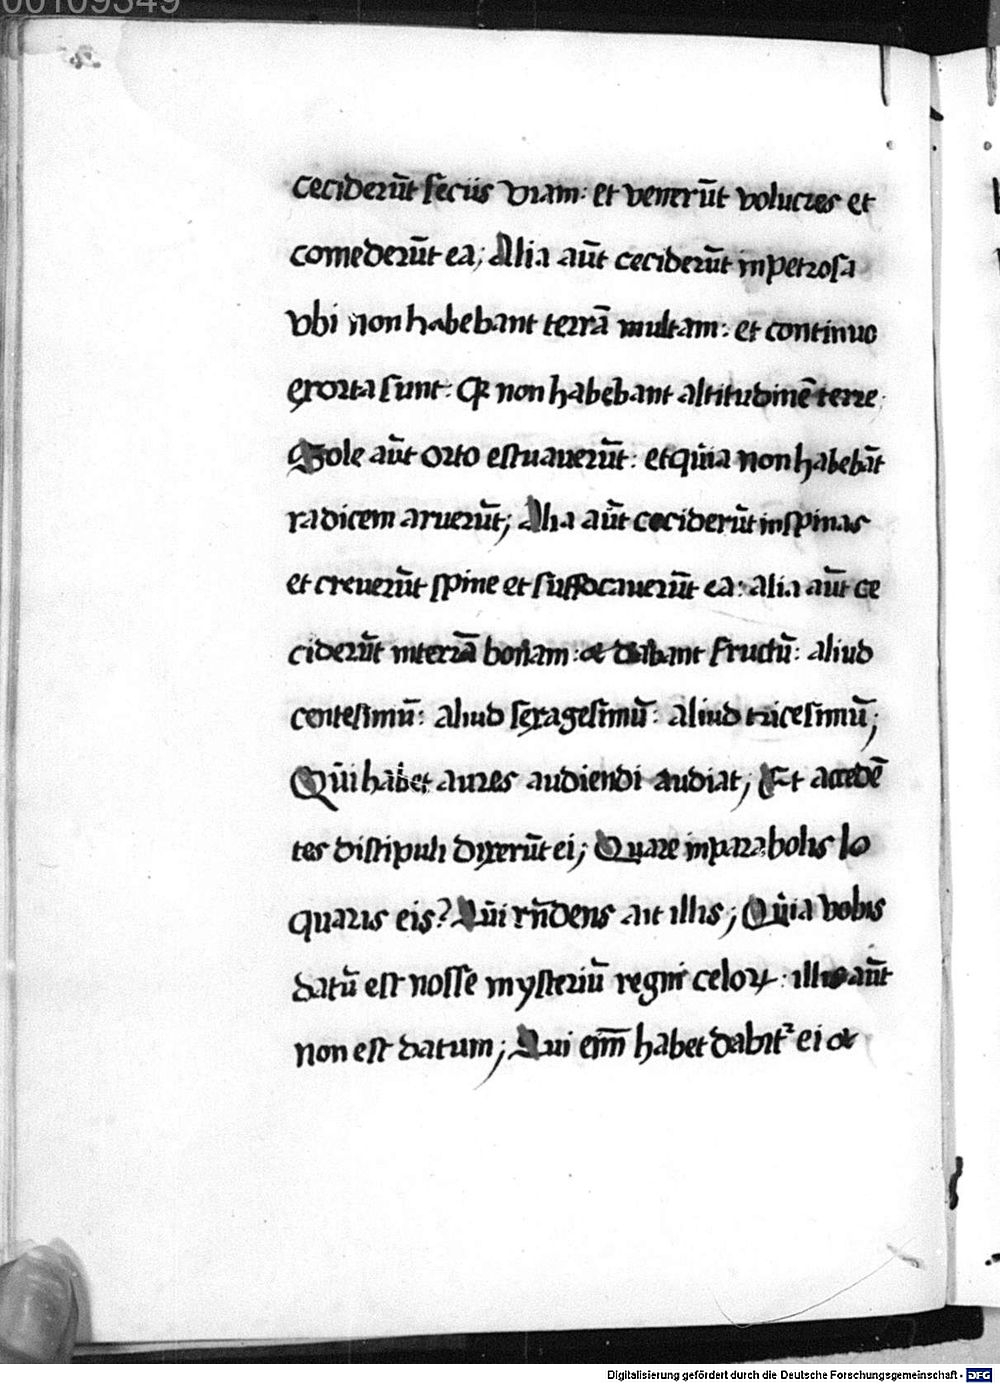 00109349
ceciderūt secus viam: et venerūt volucres et
comederūt ea; Alia aūt ceciderūt in petrosa
vbi non habebant terrā multam: et continuo
exorta sunt: Qꝛ non habebant altitudinē terre
Sole aūt orto estuauerūt: et quia non habebāt
radicem aruerūt; Alia aūt ceciderūt in spinas
et creuerūt spine et suffocauerūt ea: alia aūt ce
ciderūt in terrā bonam: et dabant fructū: aliud
centesimū: aliud sexagesimū: aliud tricesimū;
Qui habet aures audiendi audiat; Et accedē
tes discipuli dixerūt ei; Quare in parabolis lo
quaris eis? Qui rn̄dens ait illis; Quia vobis
datū est nosse mysteriū regni celoꝝ: illis aūt
non est datum; Qui enī habet dabit᷑ ei et
Digitalisierung gefördert durch die Deutsche Forschungsgemeinschaft - DFG